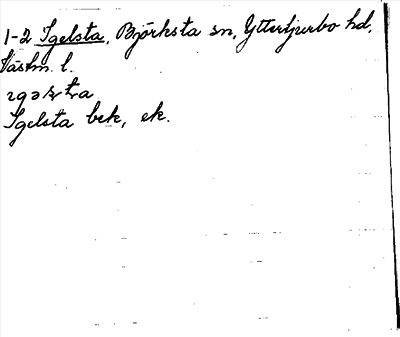 1-2 Igelsta, Björksta sn, Yttertjurbo hd,
Västm. l.
Igelsta bek, ek.